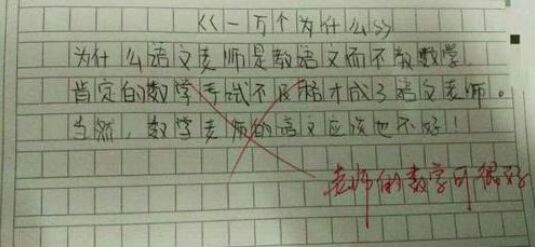 《一万个为什么》
为什么语文老师是教语文而不教数学，
肯定的数学考试不及格才成了语文老师。
当然，数学老师的语文应该也不好！
老师的数学可很好